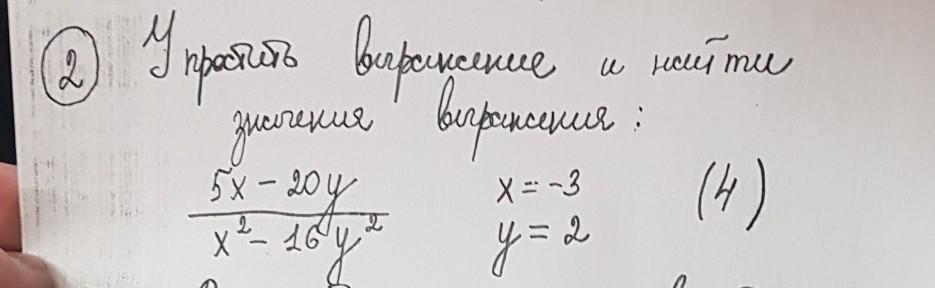 2 Упростить выражение и найти
значения выражения:
5x - 20y x = -3 (4)
x² - 16y² y = 2